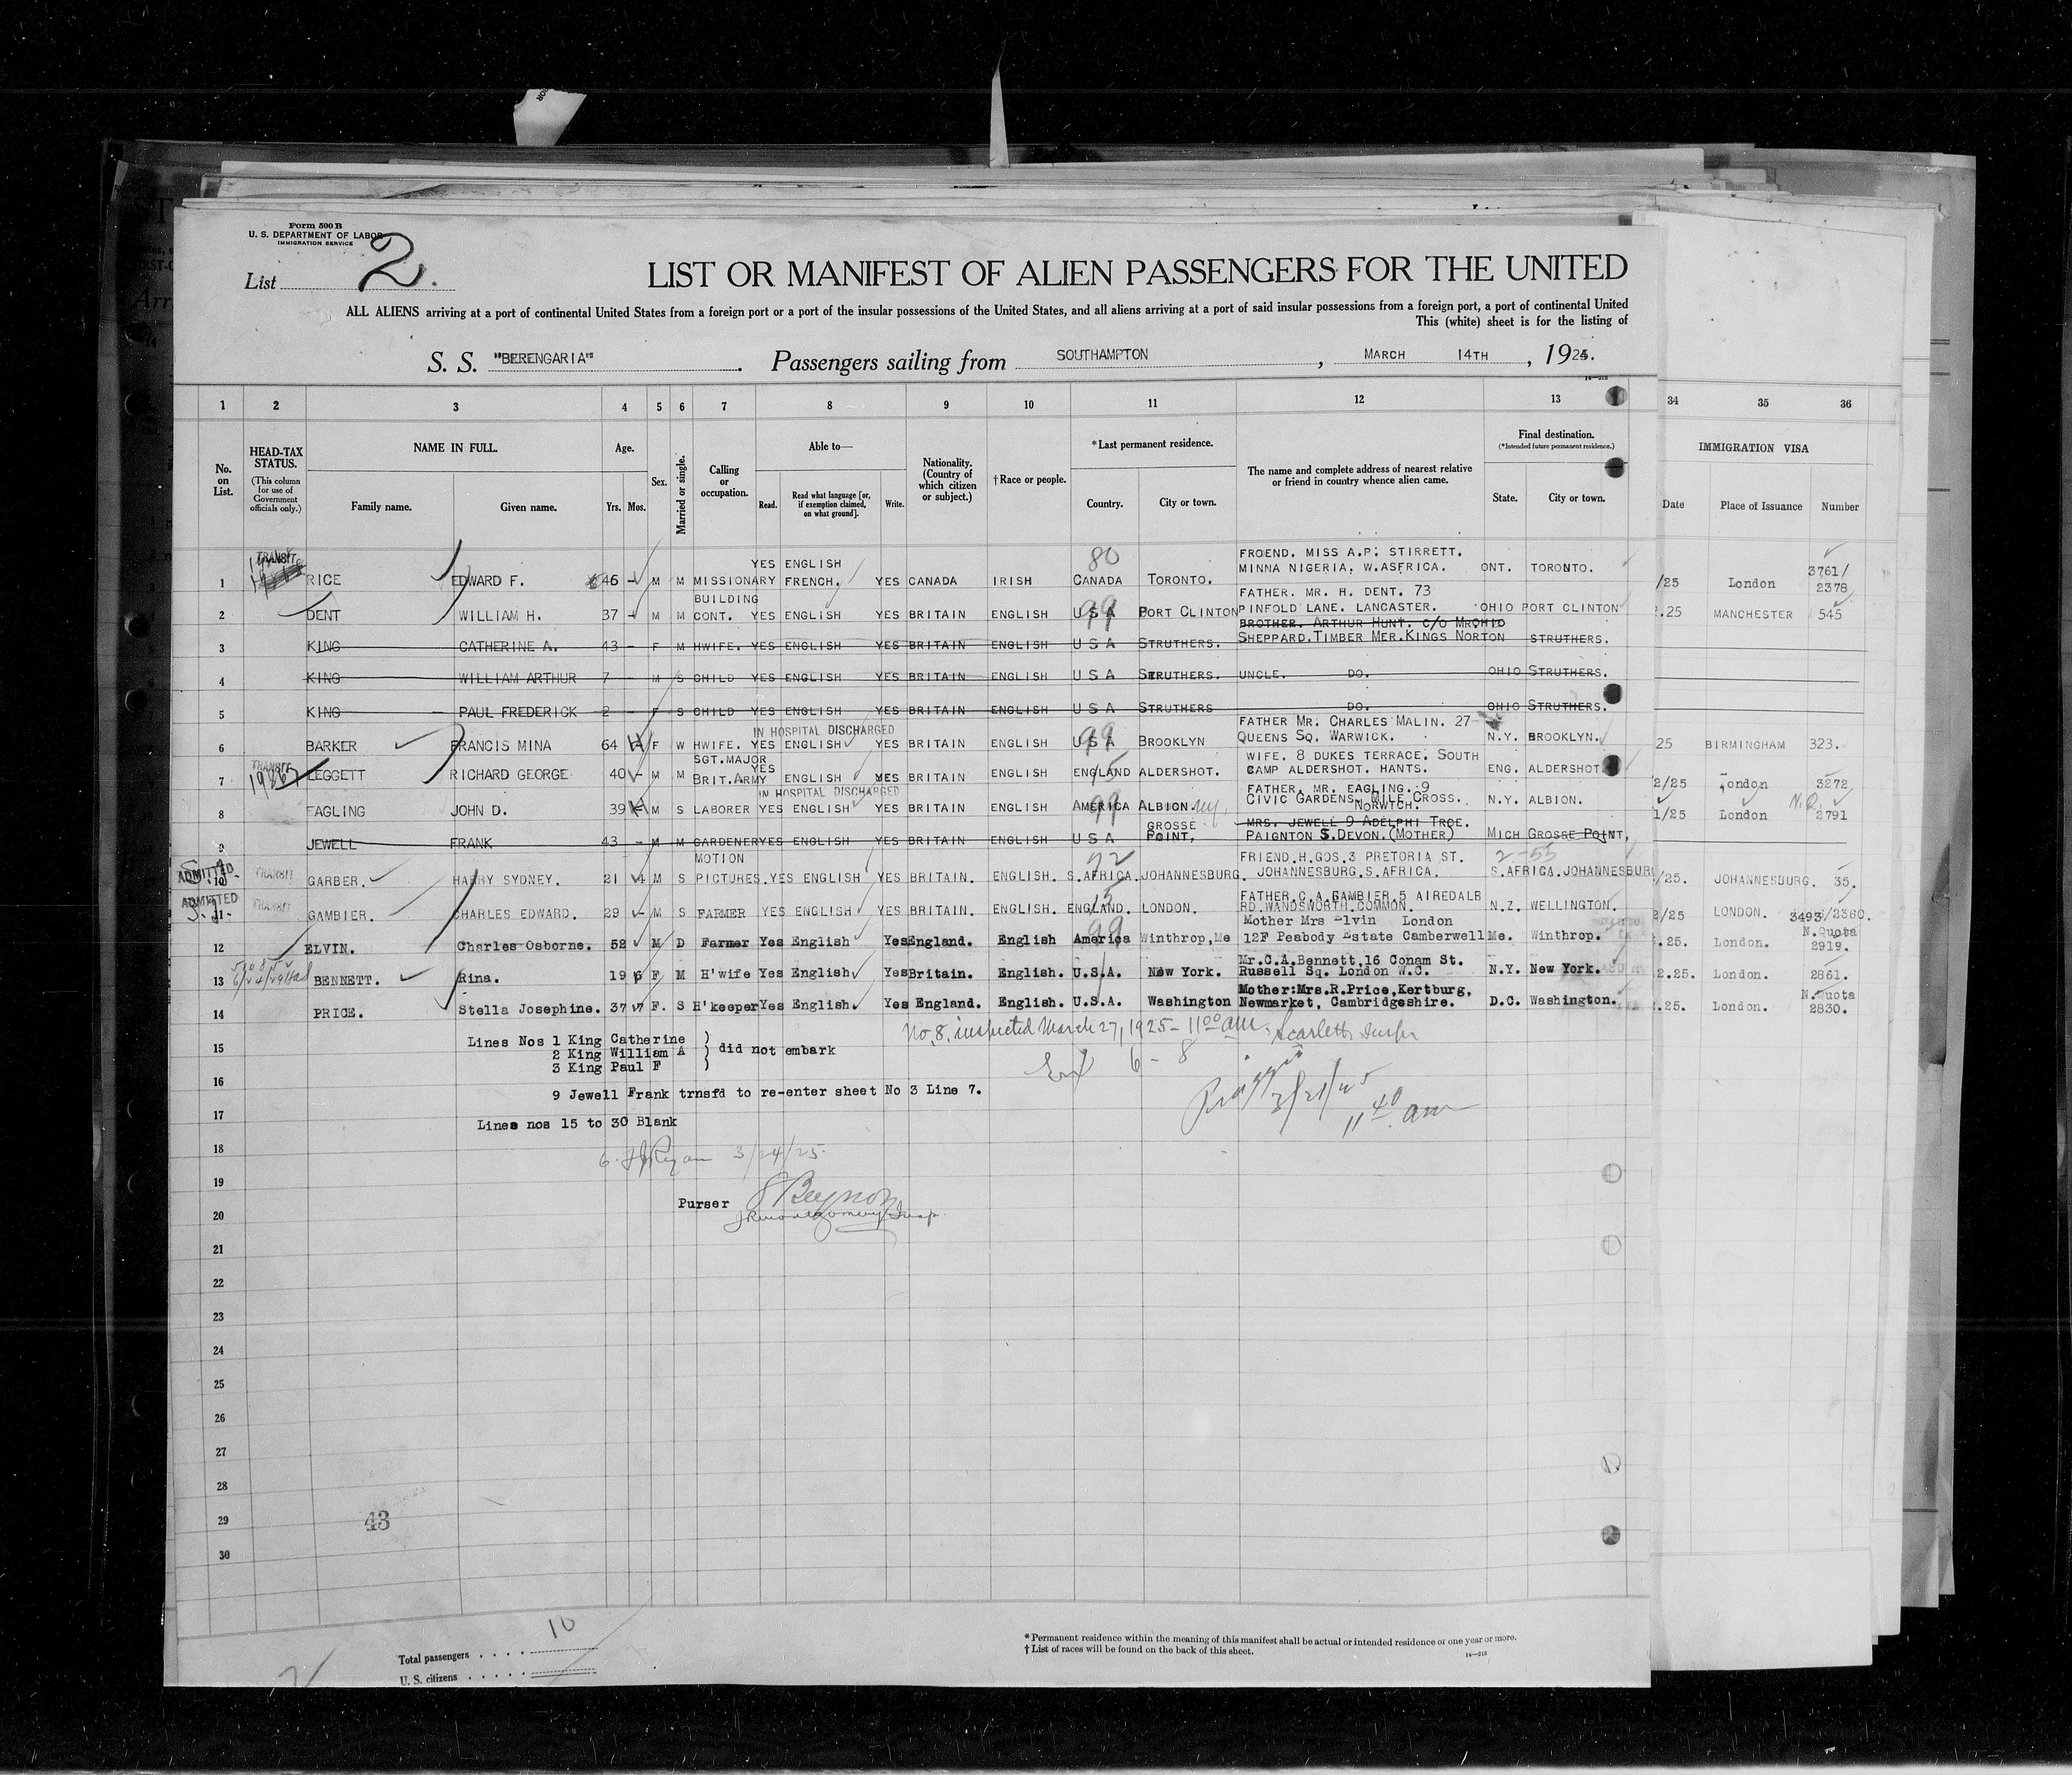 Form 500 B
U. S. DEPARTMENT OF LABOR
IMMIGRATION SERVICE
List 2.
LIST OR MANIFEST OF ALIEN PASSENGERS FOR THE UNITED
ALL ALIENS arriving at a port of continental United States from a foreign port or a port of the insular possessions of the United States, and all aliens arriving at a port of said insular possessions from a foreign port, a port of continental United
This (white) sheet is for the listing of
S. S. "BERENGARIA" . Passengers sailing from SOUTHAMPTON , MARCH 14TH , 1925.
1 2 3 4 5 6 7 8 9 10 11 12 13 34 35 36
No. on List.
HEAD-TAX STATUS.
(This column for use of Government officials only.)
NAME IN FULL.
Family name. Given name.
Age.
Yrs. Mos.
Sex.
Married or single.
Calling or occupation.
Able to—
Read. Read what language [or, if exemption claimed, on what ground]. Write.
Nationality. (Country of which citizen or subject.)
†Race or people.
*Last permanent residence.
Country. City or town.
The name and complete address of nearest relative or friend in country whence alien came.
Final destination.
(*Intended future permanent residence.)
State. City or town.
IMMIGRATION VISA
Date Place of Issuance Number
TRANSIT YES ENGLISH 80 FROEND. MISS A.P. STIRRETT.
1 RICE EDWARD F. 46 - M M MISSIONARY FRENCH. YES CANADA IRISH CANADA TORONTO. MINNA NIGERIA. W.ASFRICA. ONT. TORONTO. /25 London 3761/ 2378
BUILDING 99 FATHER. MR. H. DENT. 73
2 DENT WILLIAM H. 37 - M M CONT. YES ENGLISH YES BRITAIN ENGLISH U S A PORT CLINTON PINFOLD LANE. LANCASTER. OHIO PORT CLINTON .25 MANCHESTER 545
BROTHER. ARTHUR HUNT. C/O MR OHIO
3 KING CATHERINE A. 43 - F M HWIFE. YES ENGLISH YES BRITAIN ENGLISH U S A STRUTHERS. SHEPPARD.TIMBER MER.KINGS NORTON STRUTHERS.
4 KING WILLIAM ARTHUR 7 - M S CHILD YES ENGLISH YES BRITAIN ENGLISH U S A STRUTHERS. UNCLE. DO. OHIO STRUTHERS.
5 KING PAUL FREDERICK 2 - F S CHILD YES ENGLISH YES BRITAIN ENGLISH U S A STRUTHERS DO. OHIO STRUTHERS.
IN HOSPITAL DISCHARGED 99 FATHER MR. CHARLES MALIN. 27
6 BARKER FRANCIS MINA 64 F W HWIFE. YES ENGLISH YES BRITAIN ENGLISH U S A BROOKLYN QUEENS SQ. WARWICK. N.Y. BROOKLYN. 25 BIRMINGHAM 323.
TRANSIT SGT.MAJOR YES 15 WIFE. 8 DUKES TERRACE. SOUTH
7 LEGGETT RICHARD GEORGE 40 - M M BRIT.ARMY ENGLISH YES BRITAIN ENGLISH ENGLAND ALDERSHOT. CAMP ALDERSHOT. HANTS. ENG. ALDERSHOT 2/25 London 3272
IN HOSPITAL DISCHARGED 99 FATHER. MR. EAGLING. 9
8 EAGLING JOHN D. 39 M S LABORER YES ENGLISH YES BRITAIN ENGLISH AMERICA ALBION. CIVIC GARDENS, MILE CROSS. NORWICH. N.Y. ALBION. 1/25 London N.Q. 2791
GROSSE MRS. JEWELL 9 ADELPHI TRCE.
9 JEWELL FRANK 43 - M M GARDENER YES ENGLISH YES BRITAIN ENGLISH U S A POINT, PAIGNTON S.DEVON.(MOTHER) MICH GROSSE POINT,
ADMITTED MOTION 72 FRIEND.H.GOS.3 PRETORIA ST. 2-55
10 TRANSIT GARBER. HARRY SYDNEY. 21 4 M S PICTURES. YES ENGLISH YES BRITAIN. ENGLISH. S.AFRICA. JOHANNESBURG. JOHANNESBURG.S.AFRICA. S.AFRICA.JOHANNESBURG /25. JOHANNESBURG. 35.
ADMITTED 15 FATHER.C.A.GAMBIER.5 AIREDALE
11 TRANSIT GAMBIER. CHARLES EDWARD. 29 - M S FARMER YES ENGLISH YES BRITAIN. ENGLISH. ENGLAND. LONDON. RD.WANDSWORTH.COMMON. N.Z. WELLINGTON. 2/25 LONDON. 3493/2360.
99 Mother Mrs Elvin London N.Quota
12 ELVIN. Charles Osborne. 52 M D Farmer Yes English Yes England. English America Winthrop,Me 12F Peabody Estate Camberwell Me. Winthrop. .25. London. 2919.
Mr.C.A.Bennett,16 Conam St.
13 BENNETT. Rina. 19 6 F M H'wife Yes English Yes Britain. English. U.S.A. New York. Russell Sq. London W.C. N.Y. New York. 2.25. London. 2861.
Mother:Mrs.R.Price,Kertburg, N.Quota
14 PRICE. Stella Josephine. 37 7 F. S H'keeper Yes English. Yes England. English. U.S.A. Washington Newmarket, Cambridgeshire. D.C. Washington. .25. London. 2830.
No. 8. inspected March 27, 1925 - 11 00 am.
15 Lines Nos 1 King Catherine )
2 King William A ) did not embark
3 King Paul F )
6 - 8
16
9 Jewell Frank trnsfd to re-enter sheet No 3 Line 7.
11 40 am
17 Lines nos 15 to 30 Blank
18
Ryan 3/24/25
19
Purser Beynon
20
21
22
23
24
25
26
27
28
29 43
30
Total passengers 10
U. S. citizens
* Permanent residence within the meaning of this manifest shall be actual or intended residence of one year or more.
† List of races will be found on the back of this sheet.
14—213